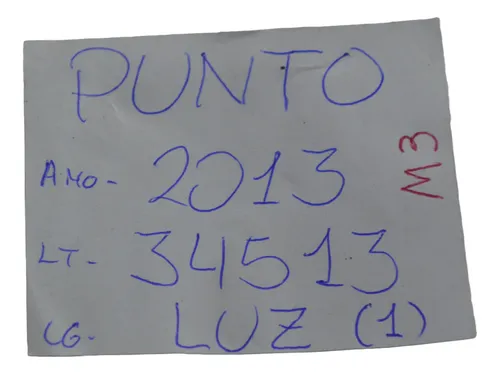 PUNTO
ANO- 2013
LT- 34513
CG- LUZ (1)
M3